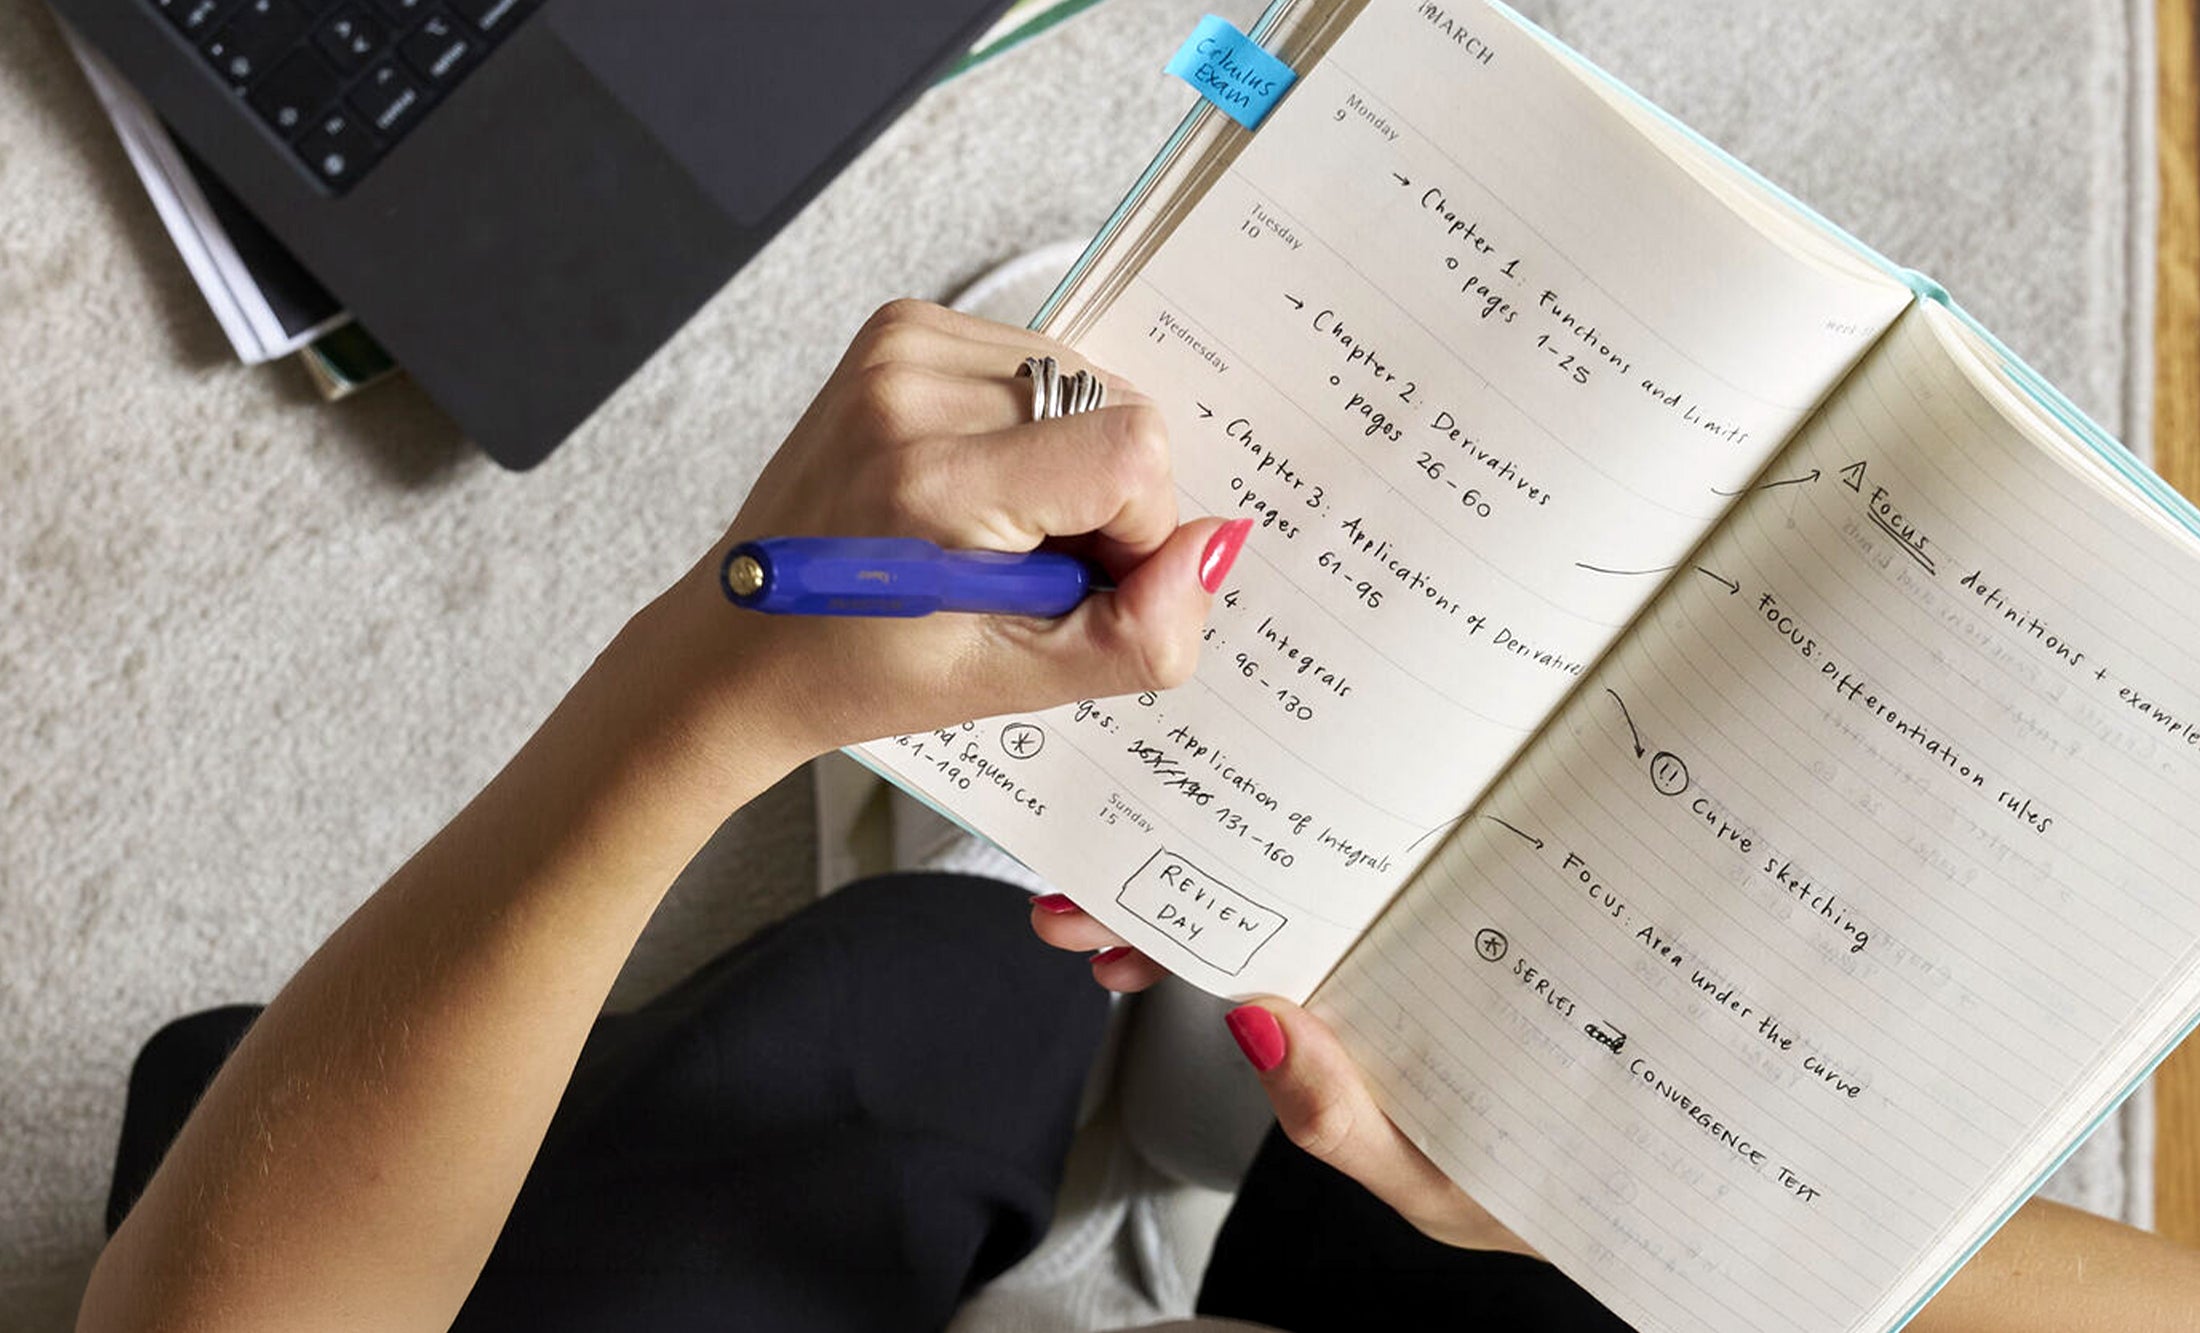 MARCH
Calculus
Exam
Monday
9
→ Chapter 1: Functions and Limits
o pages 1-25
Tuesday
10
→ Chapter 2: Derivatives
o pages 26-60
Wednesday
11
→ Chapter 3: Applications of Derivatives
o pages 61-95
4: Integrals
96-130
5: Application of Integrals
131-160
Sequences
161-190
Sunday
15
REVIEW
DAY
week
Focus definitions + examples
→ FOCUS: Differentiation rules
!! Curve sketching
→ FOCUS: Area under the curve
* SERIES CONVERGENCE TEST